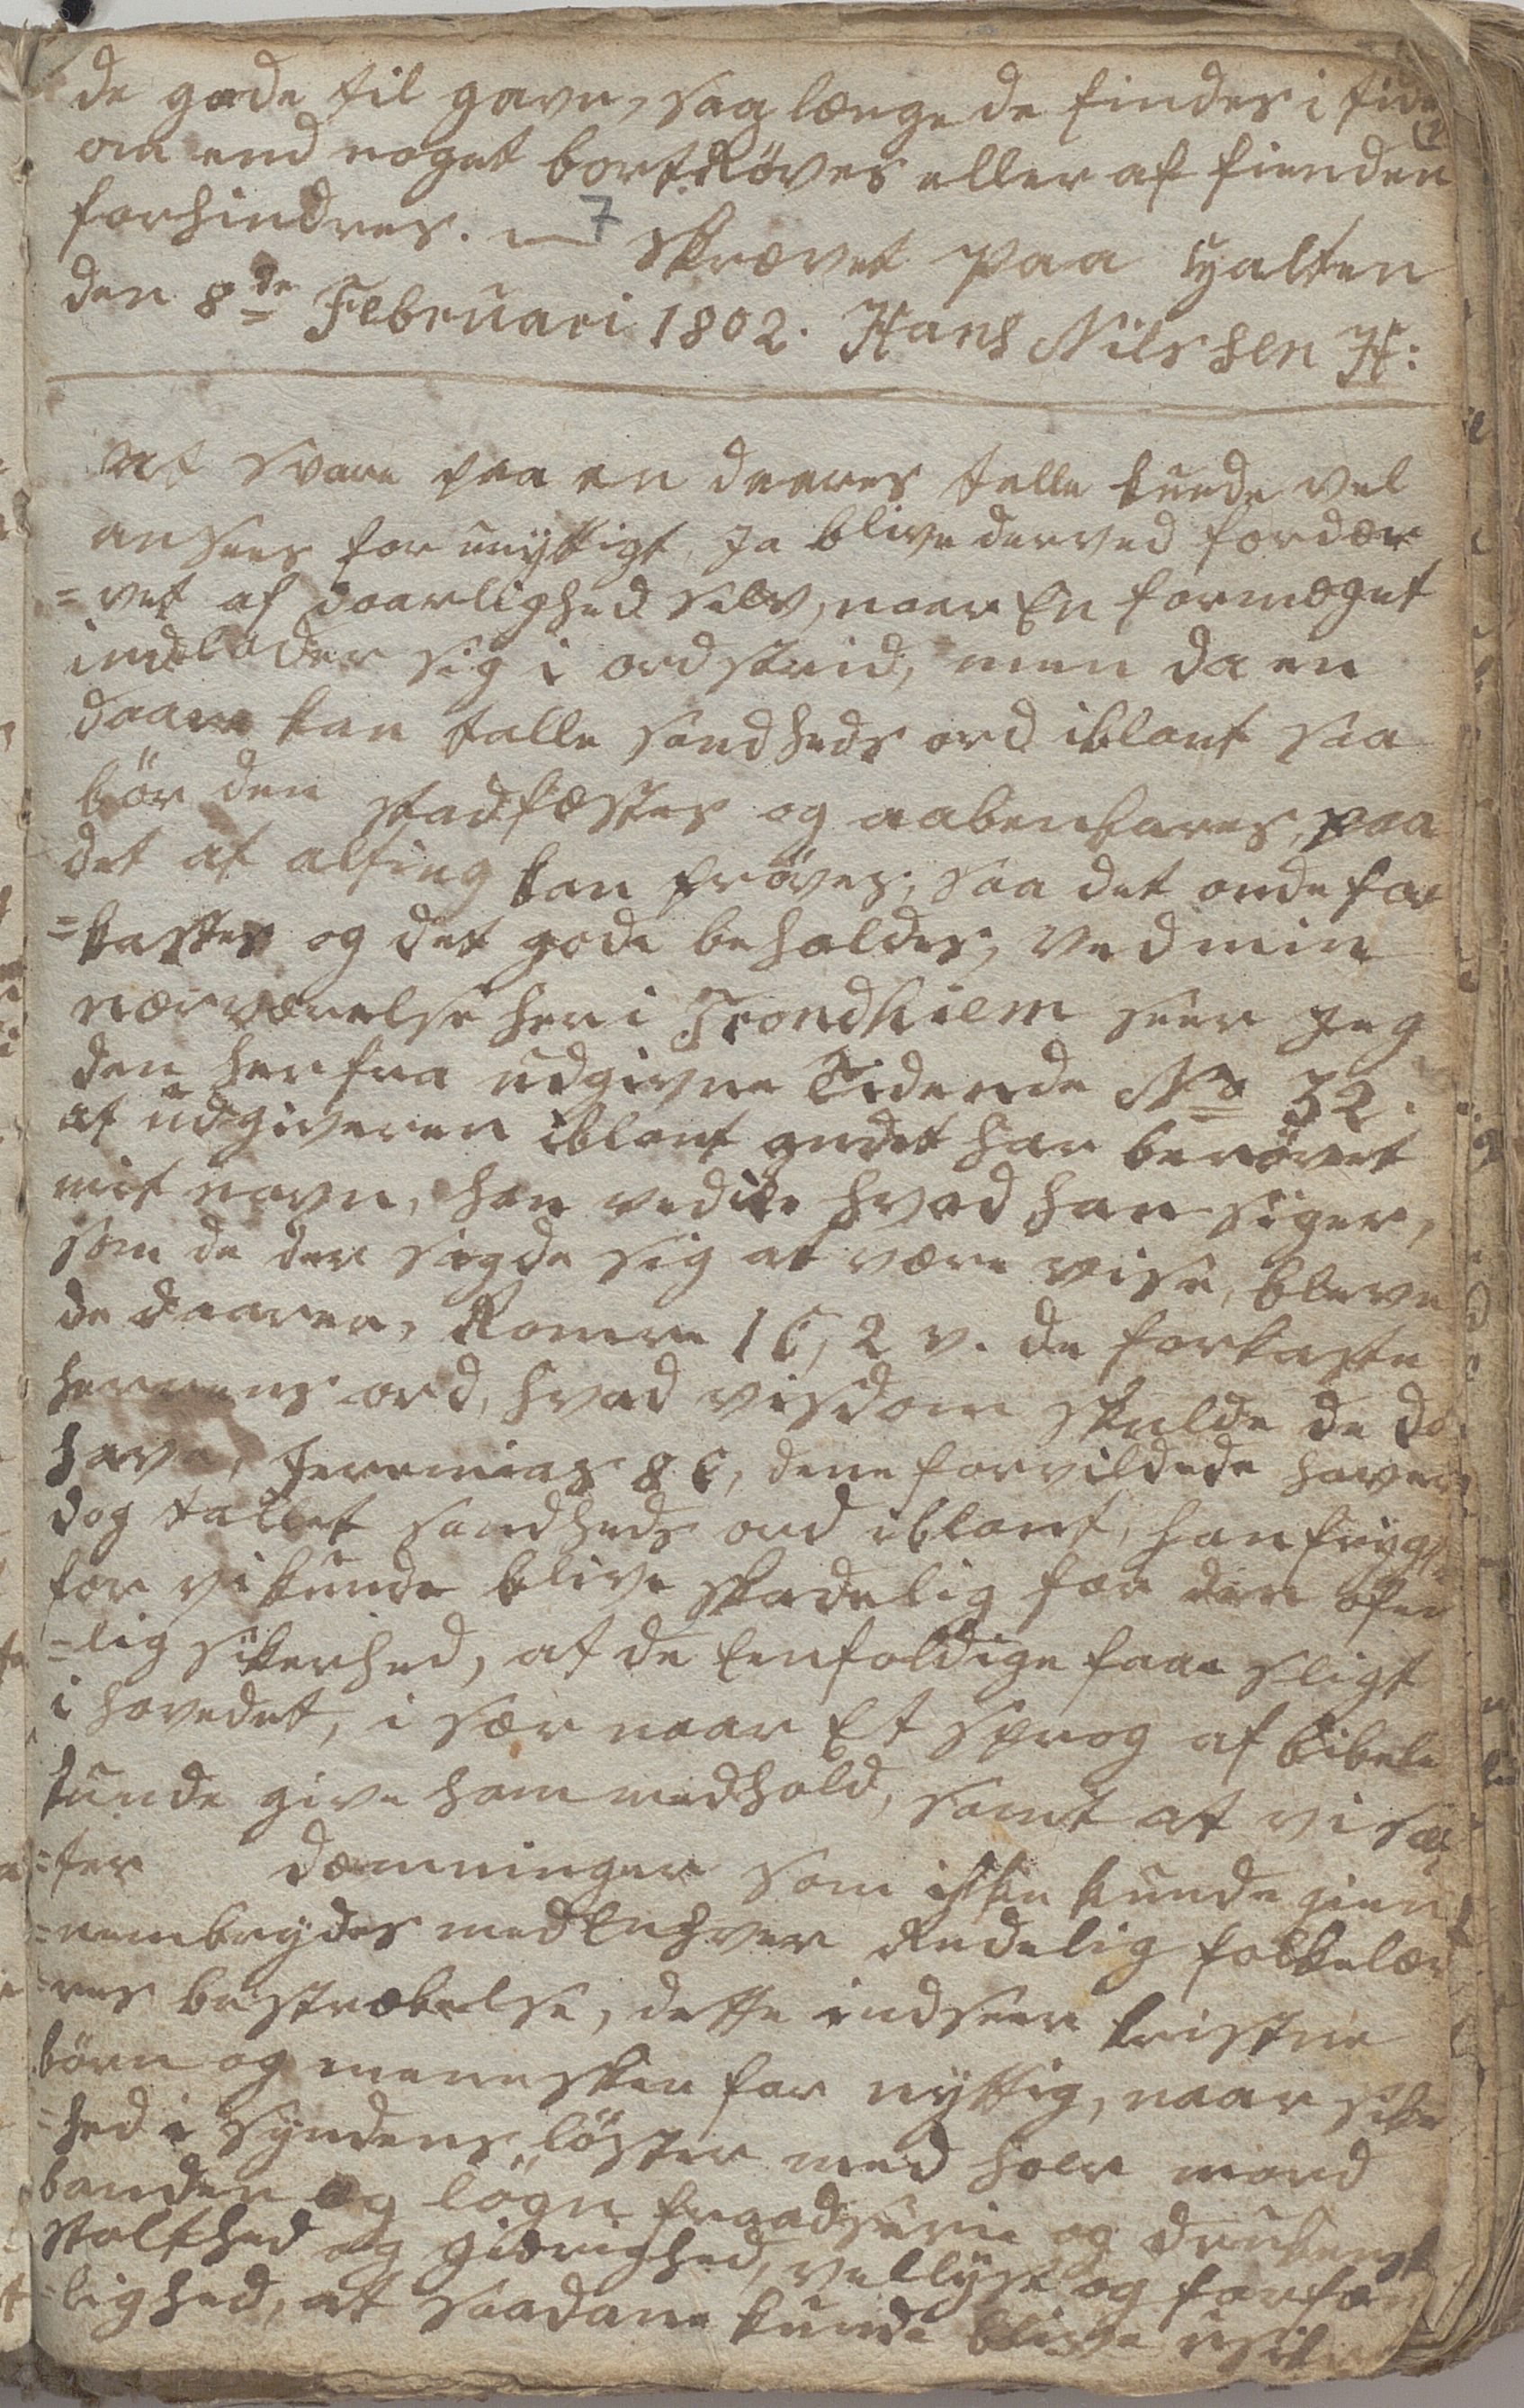 de gode til gavn, saa længe de findes i tide
om end noget bortRöves eller af fienden
forhindres. 7 Skrævet paa Halten
den 8de Februari 1802. Hans Nilshen H:
at svare paa en daares talle kunde vel
ansees for unyttigt, Ja blive derved fordær
=vet af daarlighed selv, naar En formeget
indlader sig i ordstrid, men da en
daare kan talle sandheds ord iblant saa
bör den stadfæstes og aabenbares, paa
det at alting kan pröves; saa det onde for
=kastes og det gode beholdes, ved min
nærværelse her i Trondhiem seer Jeg
den herfra udgivne Tidende No 32.
at udgiveren iblant andet har berövet
mit navn, han ved ike hvad han siger,
som de der sagde sig at være vise, bleve
de daarer, Romere 1 C, 2 v. de forkaste
herrens ord, hvad visdom skulde de da
have, Jeremias 8 C, dene forvildede haver
dog tallet sandheds ord iblant, han frygte
for vi kunde blive skadelig for den ofen
=lig sikerhed, at de Eenfoldige faar sligt
i hovedet, i sær naar Et sprog af bibele
kunde give ham medhold, samt at vi sæt
=ter dæmninger som ikke kunde gien
=nembrydes med Enhver Redelig folkelæ
=res bestræbelse, dette indseer kristne
börn og mennesker for nyttig, naar siker
=hed i syndens löster med hoer mord
banden og lögn fraadserie og drukensk
stolthed og gierighed, vellyst og forfæn
=lighed, at saadane kunde blive usik